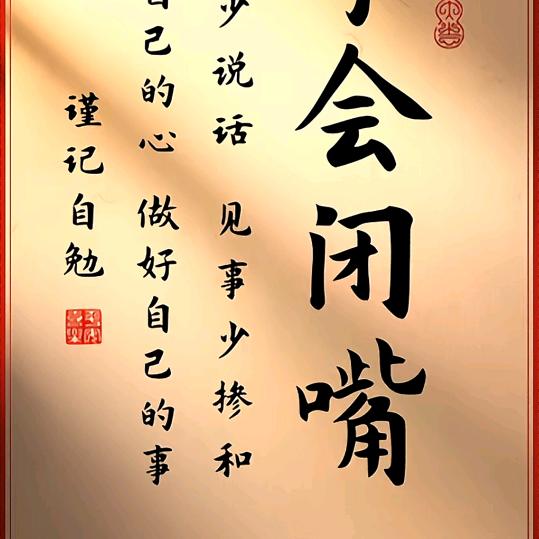 会闭嘴
少说话 见事少掺和
自己的心 做好自己的事
谨记自勉